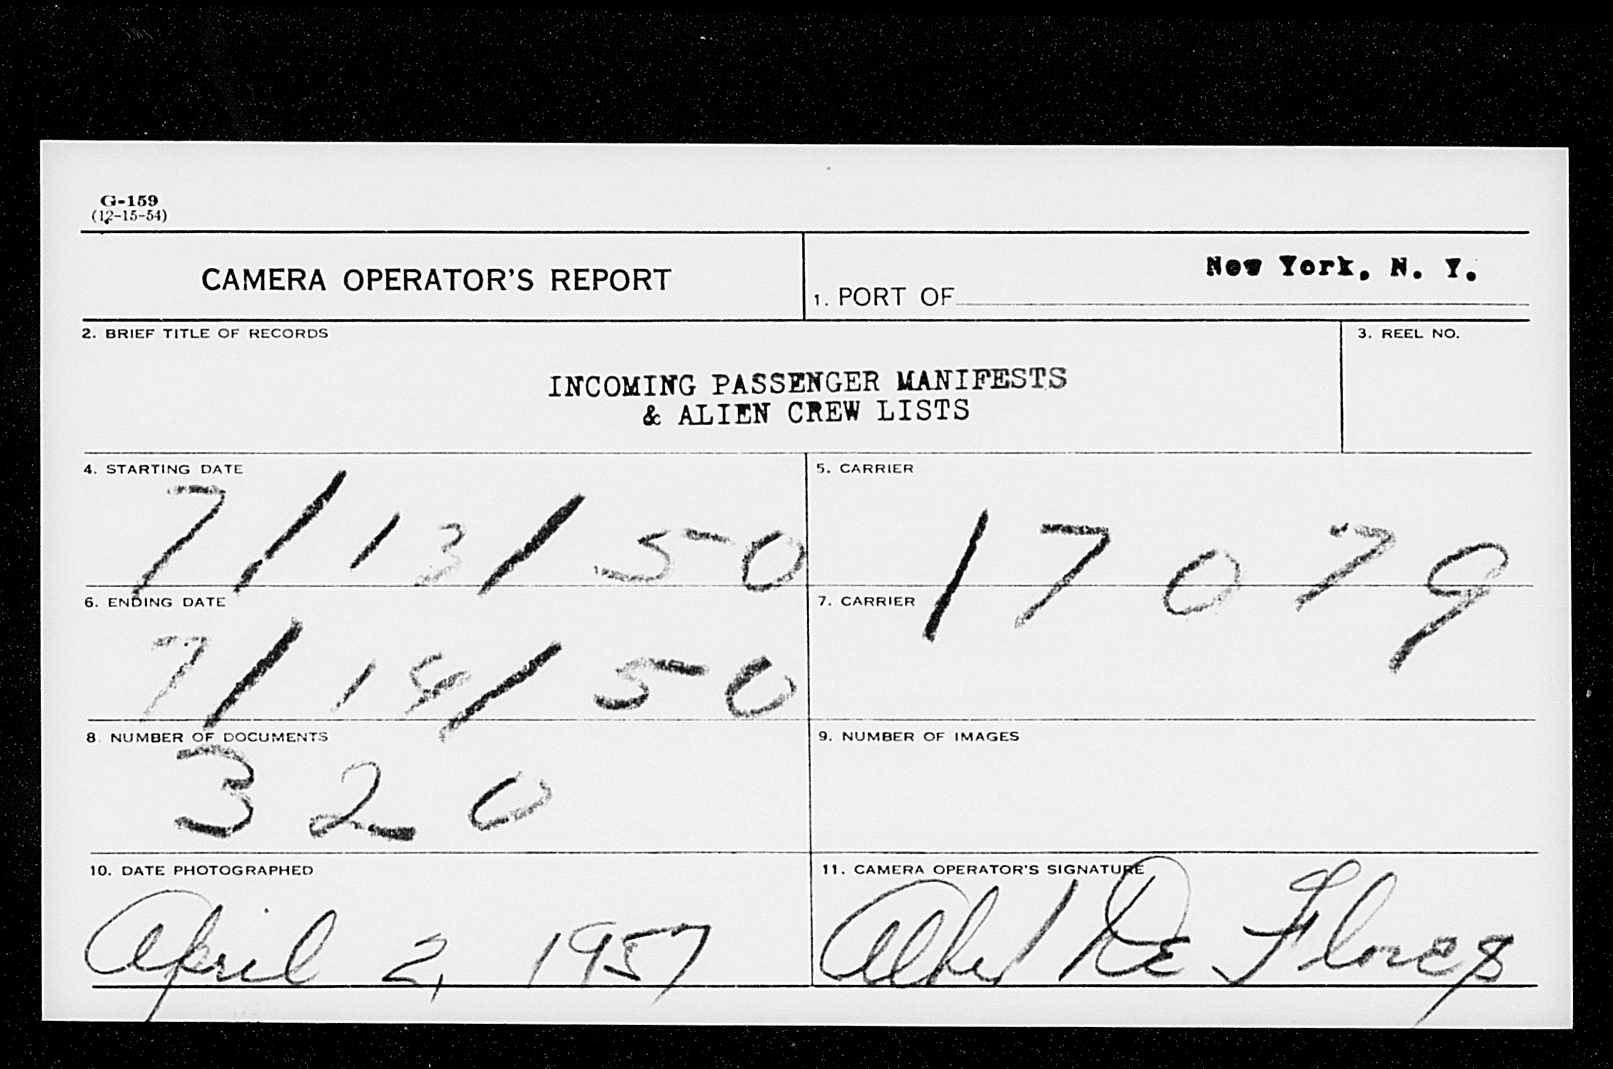 G-159
(12-15-54)
CAMERA OPERATOR'S REPORT
1. PORT OF New York, N. Y.
2. BRIEF TITLE OF RECORDS
3. REEL NO.
INCOMING PASSENGER MANIFESTS
& ALIEN CREW LISTS
4. STARTING DATE
7/13/50
5. CARRIER
17079
6. ENDING DATE
7/14/50
7. CARRIER
8. NUMBER OF DOCUMENTS
320
9. NUMBER OF IMAGES
10. DATE PHOTOGRAPHED
April 2, 1957
11. CAMERA OPERATOR'S SIGNATURE
De Flores